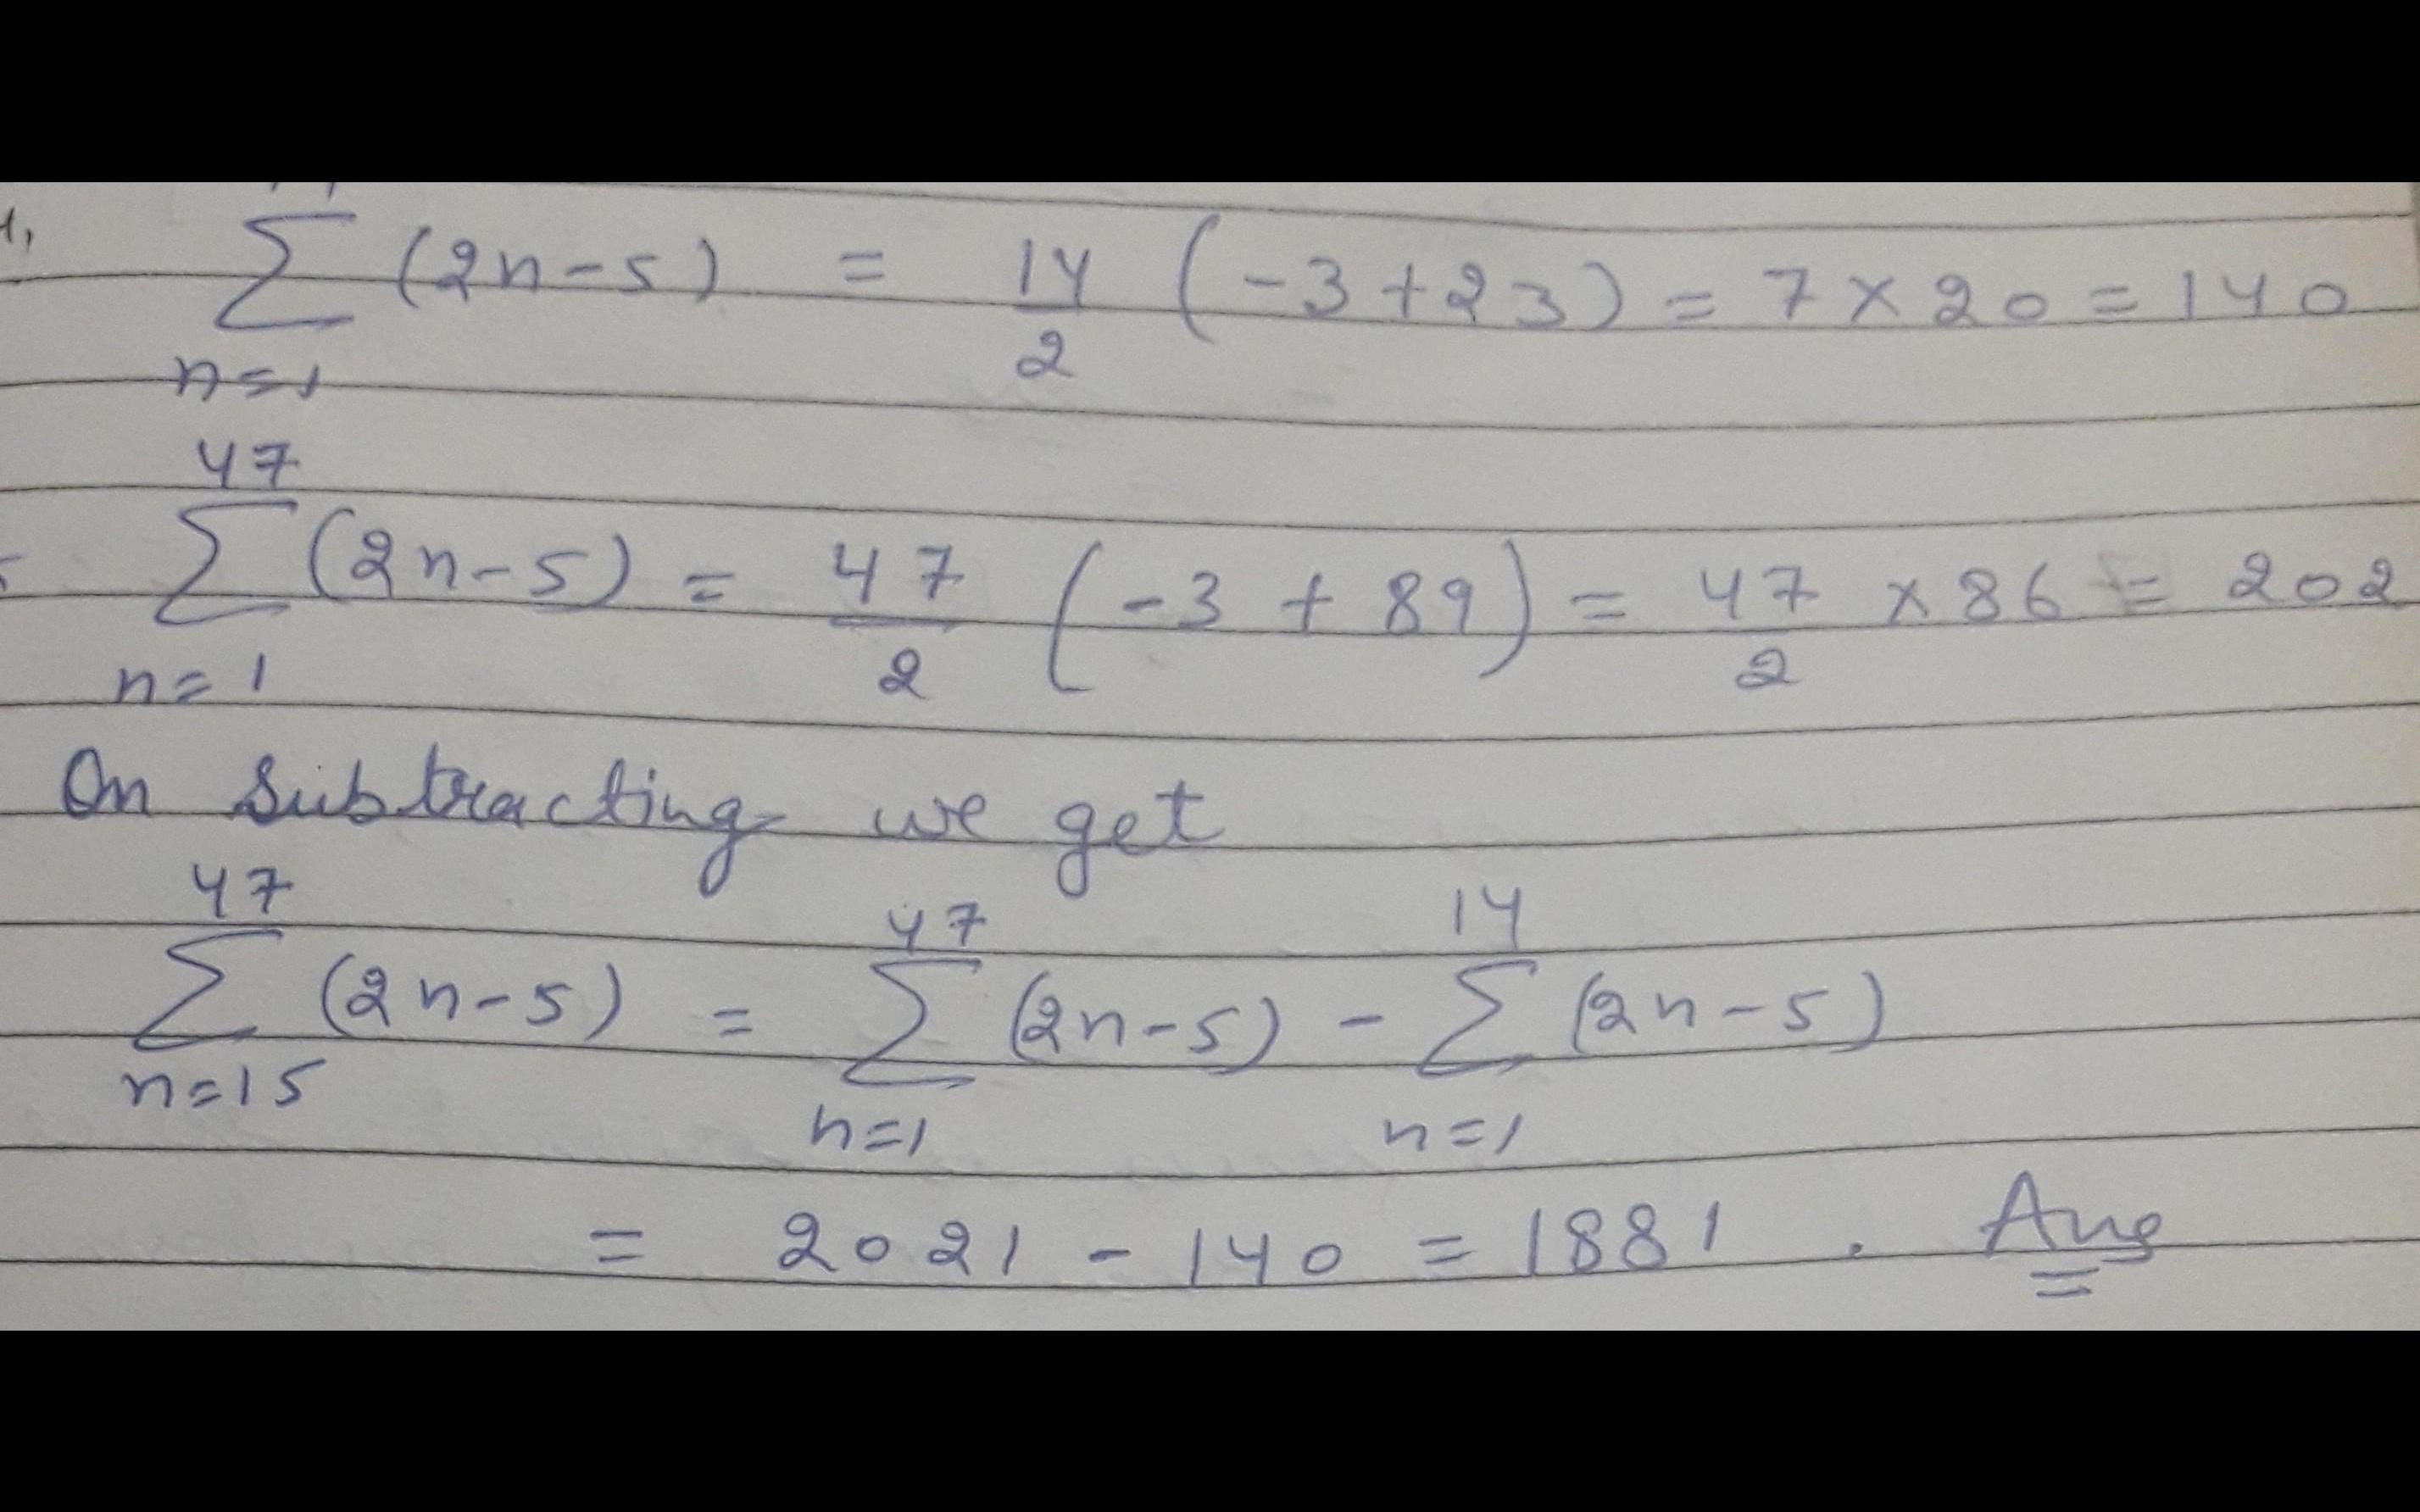 ∑ (2n-5) = 14/2 (-3+23) = 7×20 = 140
n=1
47
∑ (2n-5) = 47/2 (-3 + 89) = 47/2 ×86 = 202
n=1
On subtracting we get
47 47 14
∑ (2n-5) = ∑ (2n-5) - ∑ (2n-5)
n=15 n=1 n=1
= 2021 - 140 = 1881 . Ans